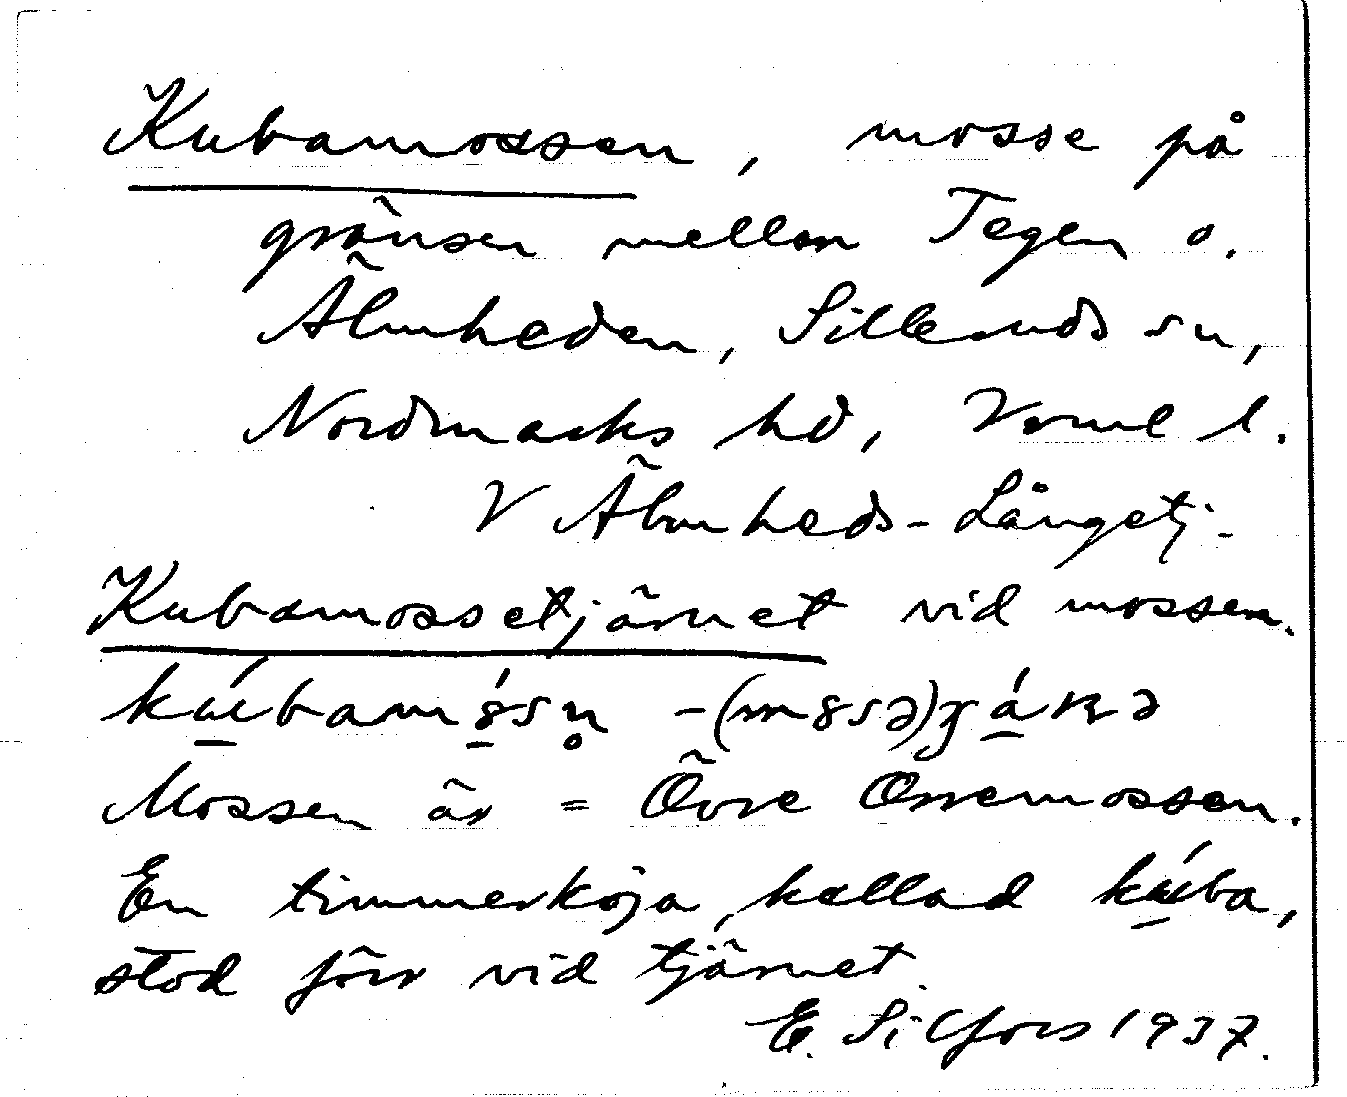 Kubamossen, mosse på
gränsen mellan Tegen o.
Älmheden, Silleruds sn,
Nordmarks hd, Verml l.
V Älmheds-Långetj.
Kubamossetjärnet vid mossen.
kúbamósn̥ -(m8sə)
Mossen är = Övre Orremossen.
En timmerkoja, kallad kúba,
stod förr vid tjärnet.
E. Silfors 1937.